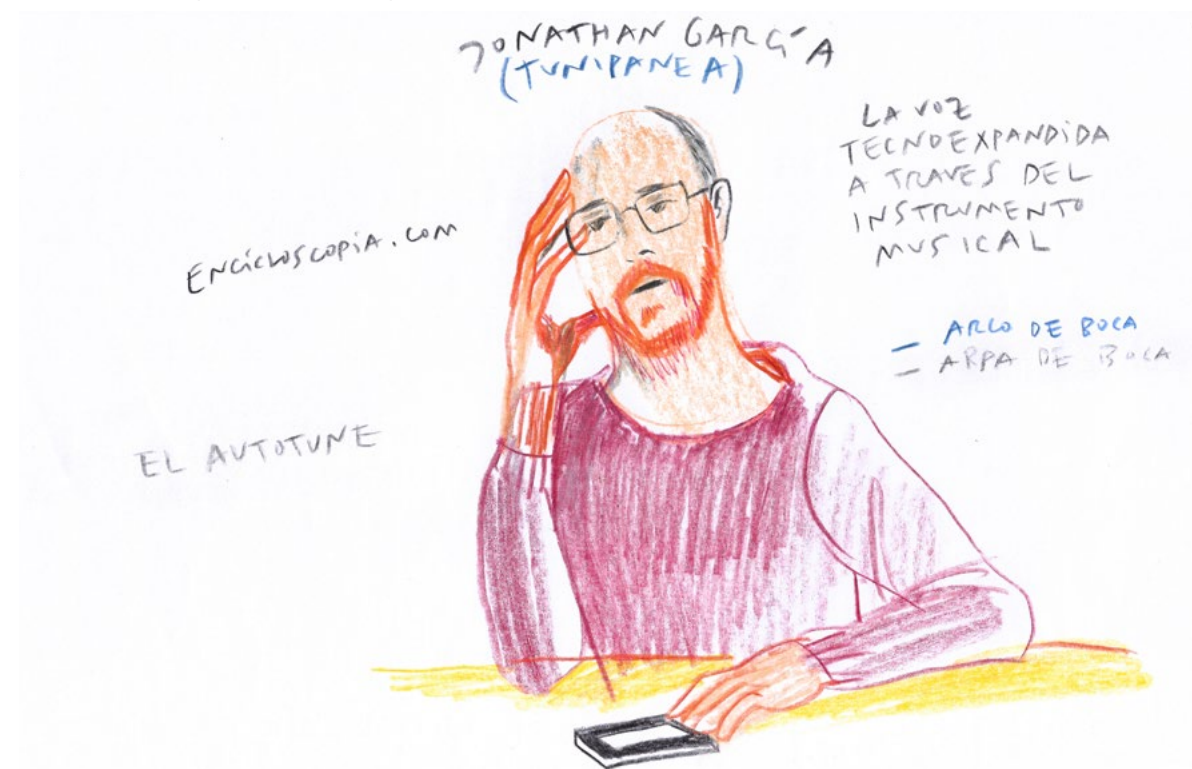 JONATHAN GARCÍA
(TUNIPANEA)
LA VOZ
TECNOEXPANDIDA
A TRAVES DEL
INSTRUMENTO
MUSICAL
ENCICLOSCOPIA.COM
– ARCO DE BOCA
– ARPA DE BOCA
EL AUTOTUNE